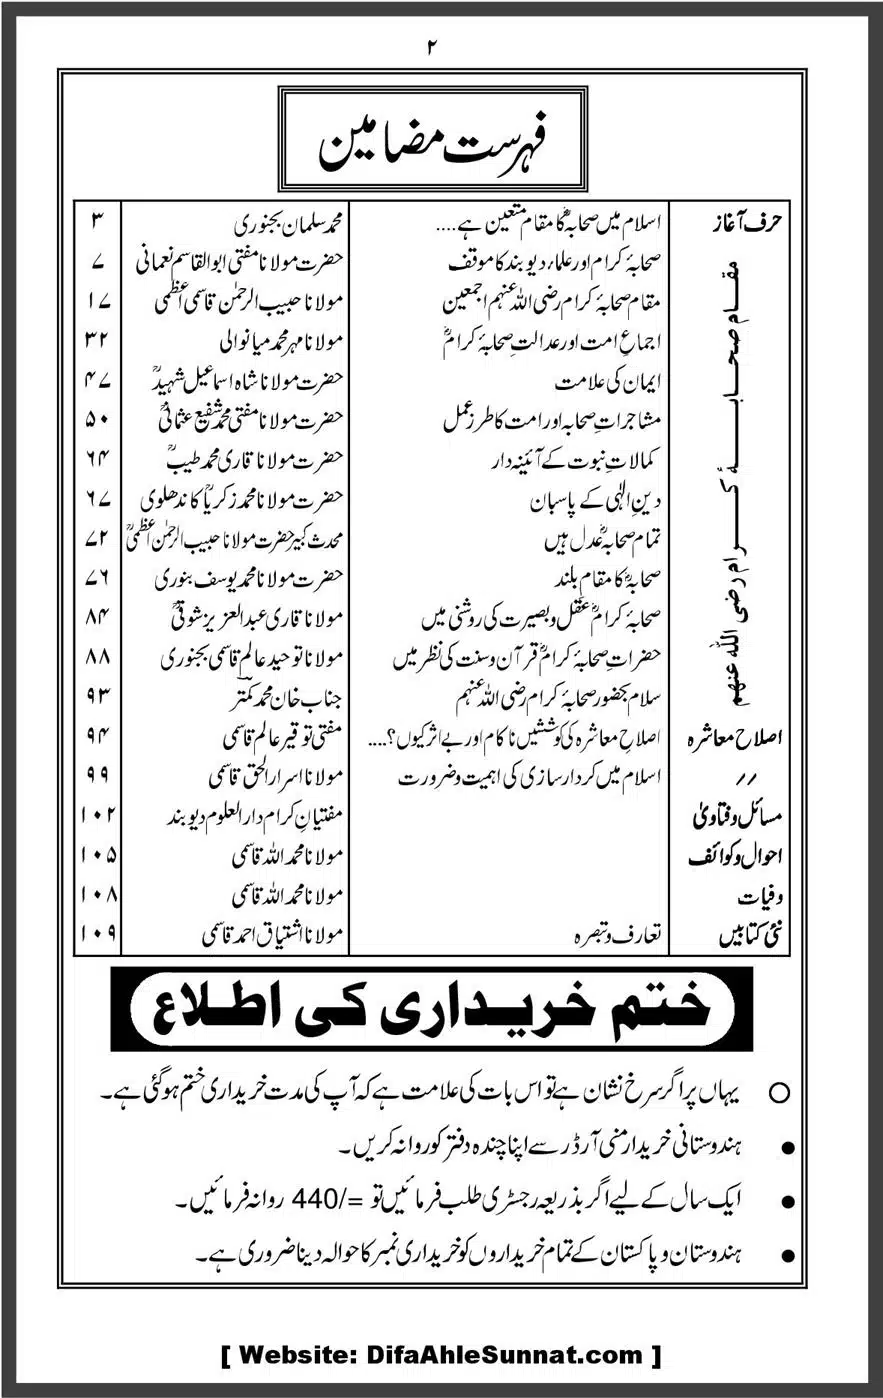 ۲
فہرست مضامین
حرف آغاز اسلام میں صحابہؓ کا مقام متعین ہے.... محمد سلمان بجنوری ۳
مقام صحابۂ کرام رضی اللہ عنہم
صحابۂ کرام اور علماء دیوبند کا موقف حضرت مولانا مفتی ابوالقاسم نعمانی ۷
مقام صحابۂ کرام رضی اللہ عنہم اجمعین مولانا حبیب الرحمٰن قاسمی اعظمی ۱۷
اجماعِ امت اور عدالتِ صحابۂ کرامؓ مولانا مہر محمد میانوالی ۳۲
ایمان کی علامت حضرت مولانا شاہ اسماعیل شہیدؒ ۴۷
مشاجراتِ صحابہ اور امت کا طرز عمل حضرت مولانا مفتی محمد شفیع عثمانیؒ ۵۰
کمالاتِ نبوت کے آئینہ دار حضرت مولانا قاری محمد طیبؒ ۶۴
دینِ الٰہی کے پاسبان حضرت مولانا محمد زکریاؒ کاندھلوی ۶۷
تمام صحابہؓ عدل ہیں محدث کبیر حضرت مولانا حبیب الرحمٰن اعظمیؒ ۷۲
صحابہؓ کا مقام بلند حضرت مولانا محمد یوسف بنوری ۷۶
صحابۂ کرامؓ عقل و بصیرت کی روشنی میں مولانا قاری عبدالعزیز شوقیؒ ۸۴
حضراتِ صحابۂ کرامؓ قرآن و سنت کی نظر میں مولانا توحید عالم قاسمی بجنوری ۸۸
سلام بحضور صحابۂ کرام رضی اللہ عنہم جناب خان محمد کمتر ۹۳
اصلاح معاشرہ اصلاحِ معاشرہ کی کوششیں ناکام اور بے اثر کیوں؟.... مفتی توقیر عالم قاسمی ۹۴
// اسلام میں کردار سازی کی اہمیت و ضرورت مولانا اسرار الحق قاسمی ۹۹
مسائل و فتاویٰ مفتیانِ کرام دارالعلوم دیوبند ۱۰۲
احوال و کوائف مولانا محمد اللہ قاسمی ۱۰۵
وفیات مولانا محمد اللہ قاسمی ۱۰۸
نئی کتابیں تعارف و تبصرہ مولانا اشتیاق احمد قاسمی ۱۰۹
ختم خریداری کی اطلاع
○ یہاں پر اگر سرخ نشان ہے تو اس بات کی علامت ہے کہ آپ کی مدت خریداری ختم ہوگئی ہے۔
● ہندوستانی خریدار منی آرڈر سے اپنا چندہ دفتر کو روانہ کریں۔
● ایک سال کے لیے اگر بذریعہ رجسٹری طلب فرمائیں تو =/440 روانہ فرمائیں۔
● ہندوستان و پاکستان کے تمام خریداروں کو خریداری نمبر کا حوالہ دینا ضروری ہے۔
[ Website: DifaAhleSunnat.com ]